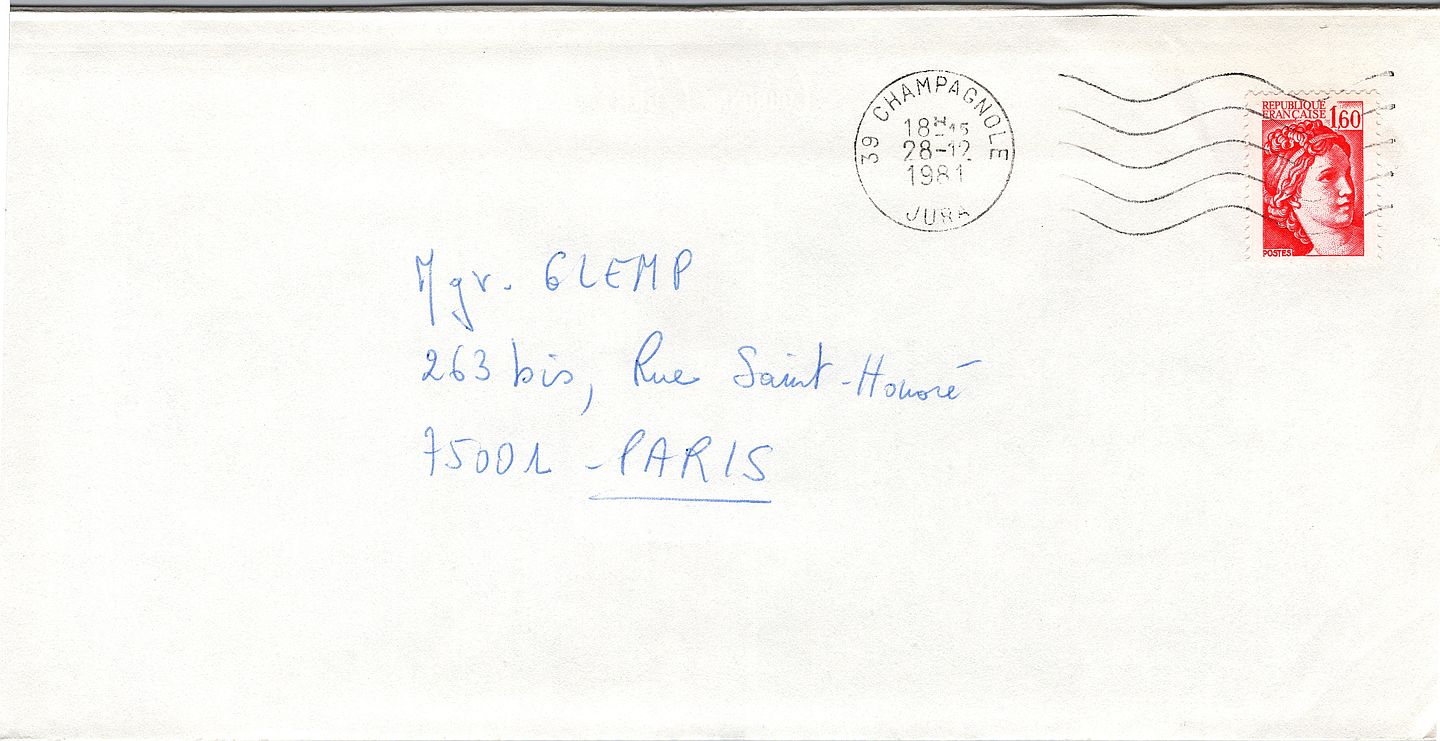 39 CHAMPAGNOLE
18H45
28-12
1981
JURA
REPUBLIQUE
FRANÇAISE
1,60
POSTES
Mgr. GLEMP
263 bis, Rue Saint-Honoré
75001 - PARIS